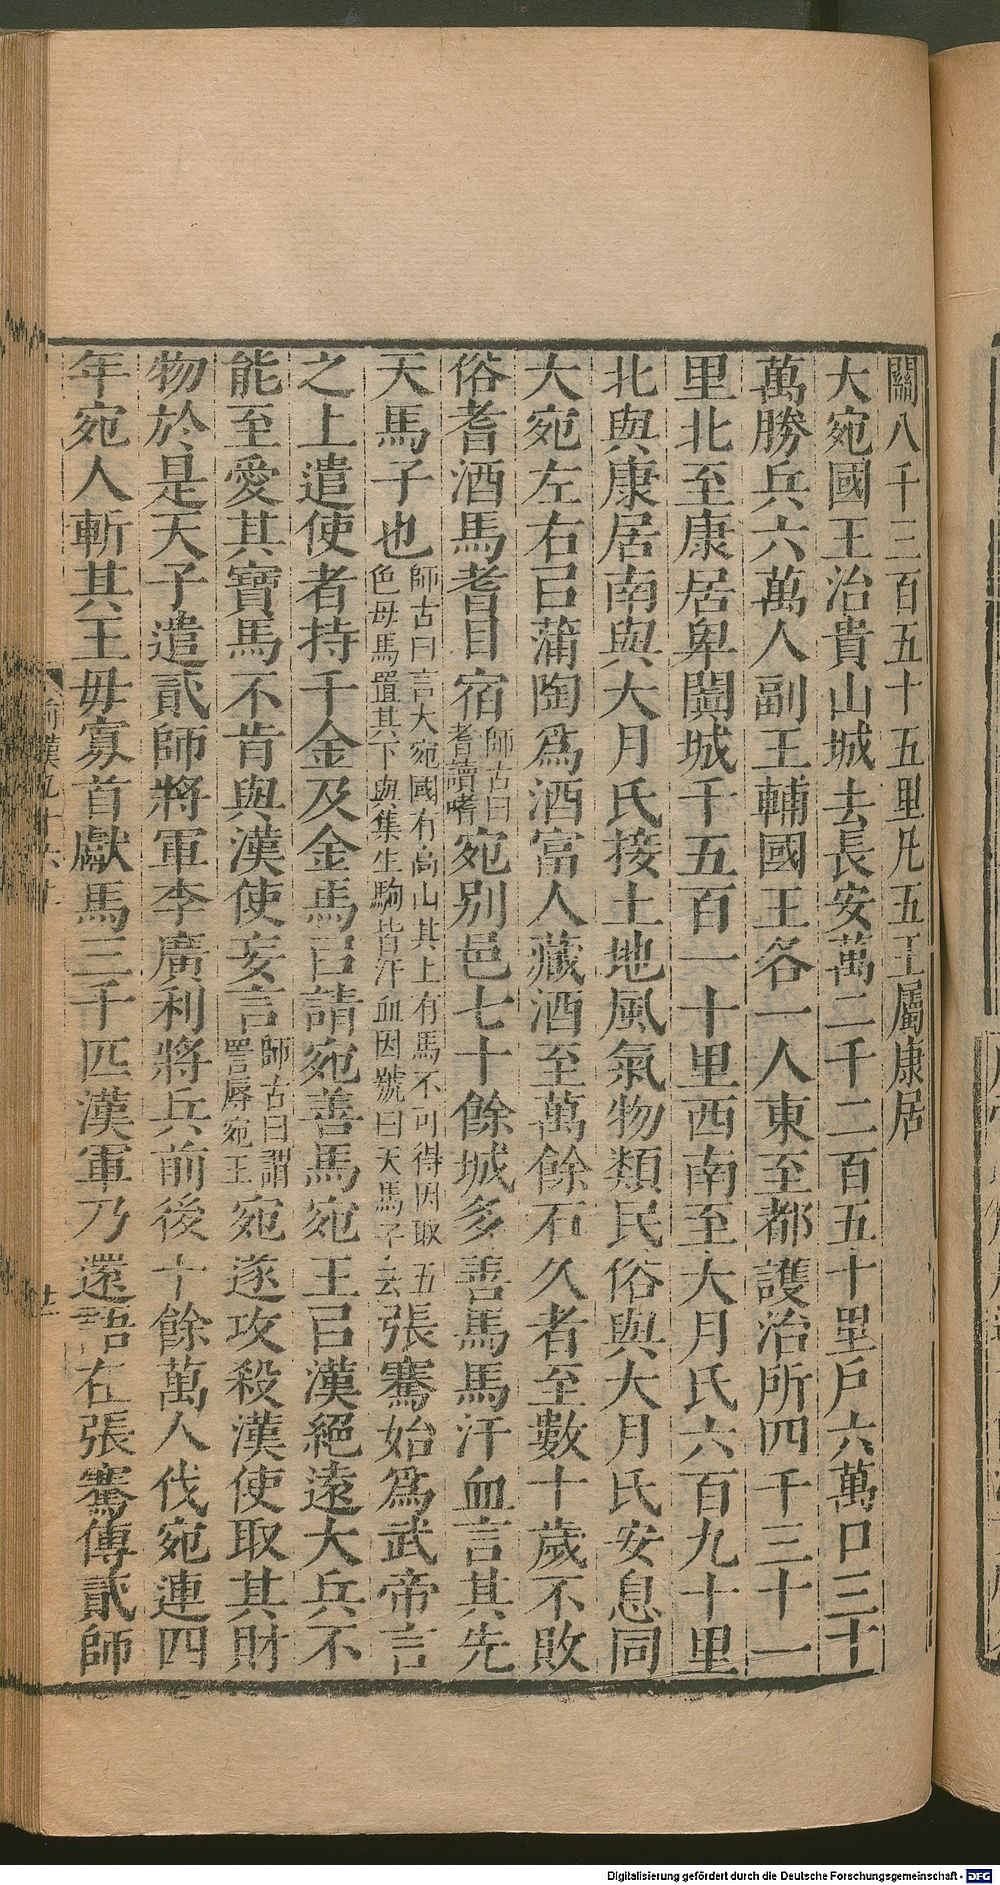 關八千三百五十五里凡五王屬康居
大宛國王治貴山城去長安萬二千二百五十里戶六萬口三十
萬勝兵六萬人副王輔國王各一人東至都護治所四千三十一
里北至康居卑闐城千五百一十里西南至大月氏六百九十里
北與康居南與大月氏接土地風氣物類民俗與大月氏安息同
大宛左右㠯蒲陶爲酒富人藏酒至萬餘石久者至數十歲不敗
俗耆酒馬耆目宿師古曰耆讀嗜宛別邑七十餘城多善馬馬汗血言其先
天馬子也師古曰言大宛國有高山其上有馬不可得因取五色母馬置其下與集生駒皆汗血因號曰天馬子云張騫始爲武帝言
之上遣使者持千金及金馬㠯請宛善馬宛王㠯漢絕遠大兵不
能至愛其寶馬不肯與漢使妄言師古曰謂詈辱宛王宛遂攻殺漢使取其財
物於是天子遣貳師將軍李廣利將兵前後十餘萬人伐宛連四
年宛人斬其王毋寡首獻馬三千匹漢軍乃還語在張騫傳貳師
前漢九十六上
Digitalisierung gefördert durch die Deutsche Forschungsgemeinschaft - DFG